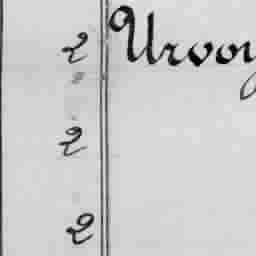 2 Urvoy
2
2